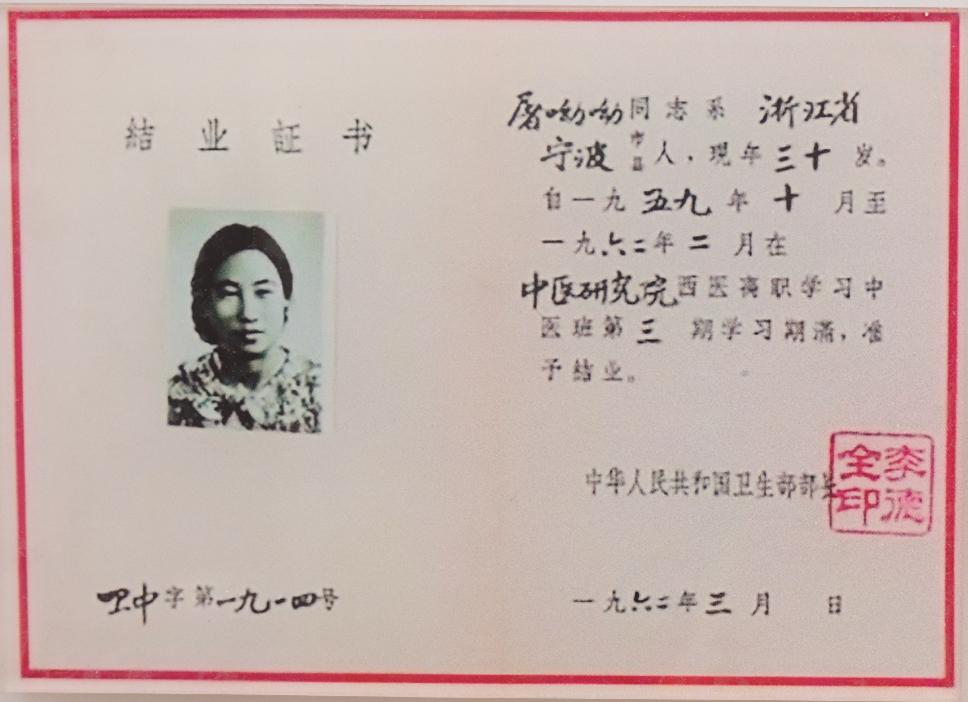 結业証书
卫中字第一九一四号
屠呦呦同志系 浙江省
宁波市县人，現年三十岁。
自一九五九年十月至
一九六二年二月在
中医研究院西医离职学习中
医班第三期学习期满，准
予結业。
中华人民共和国卫生部部长
李德全印
一九六二年三月 日